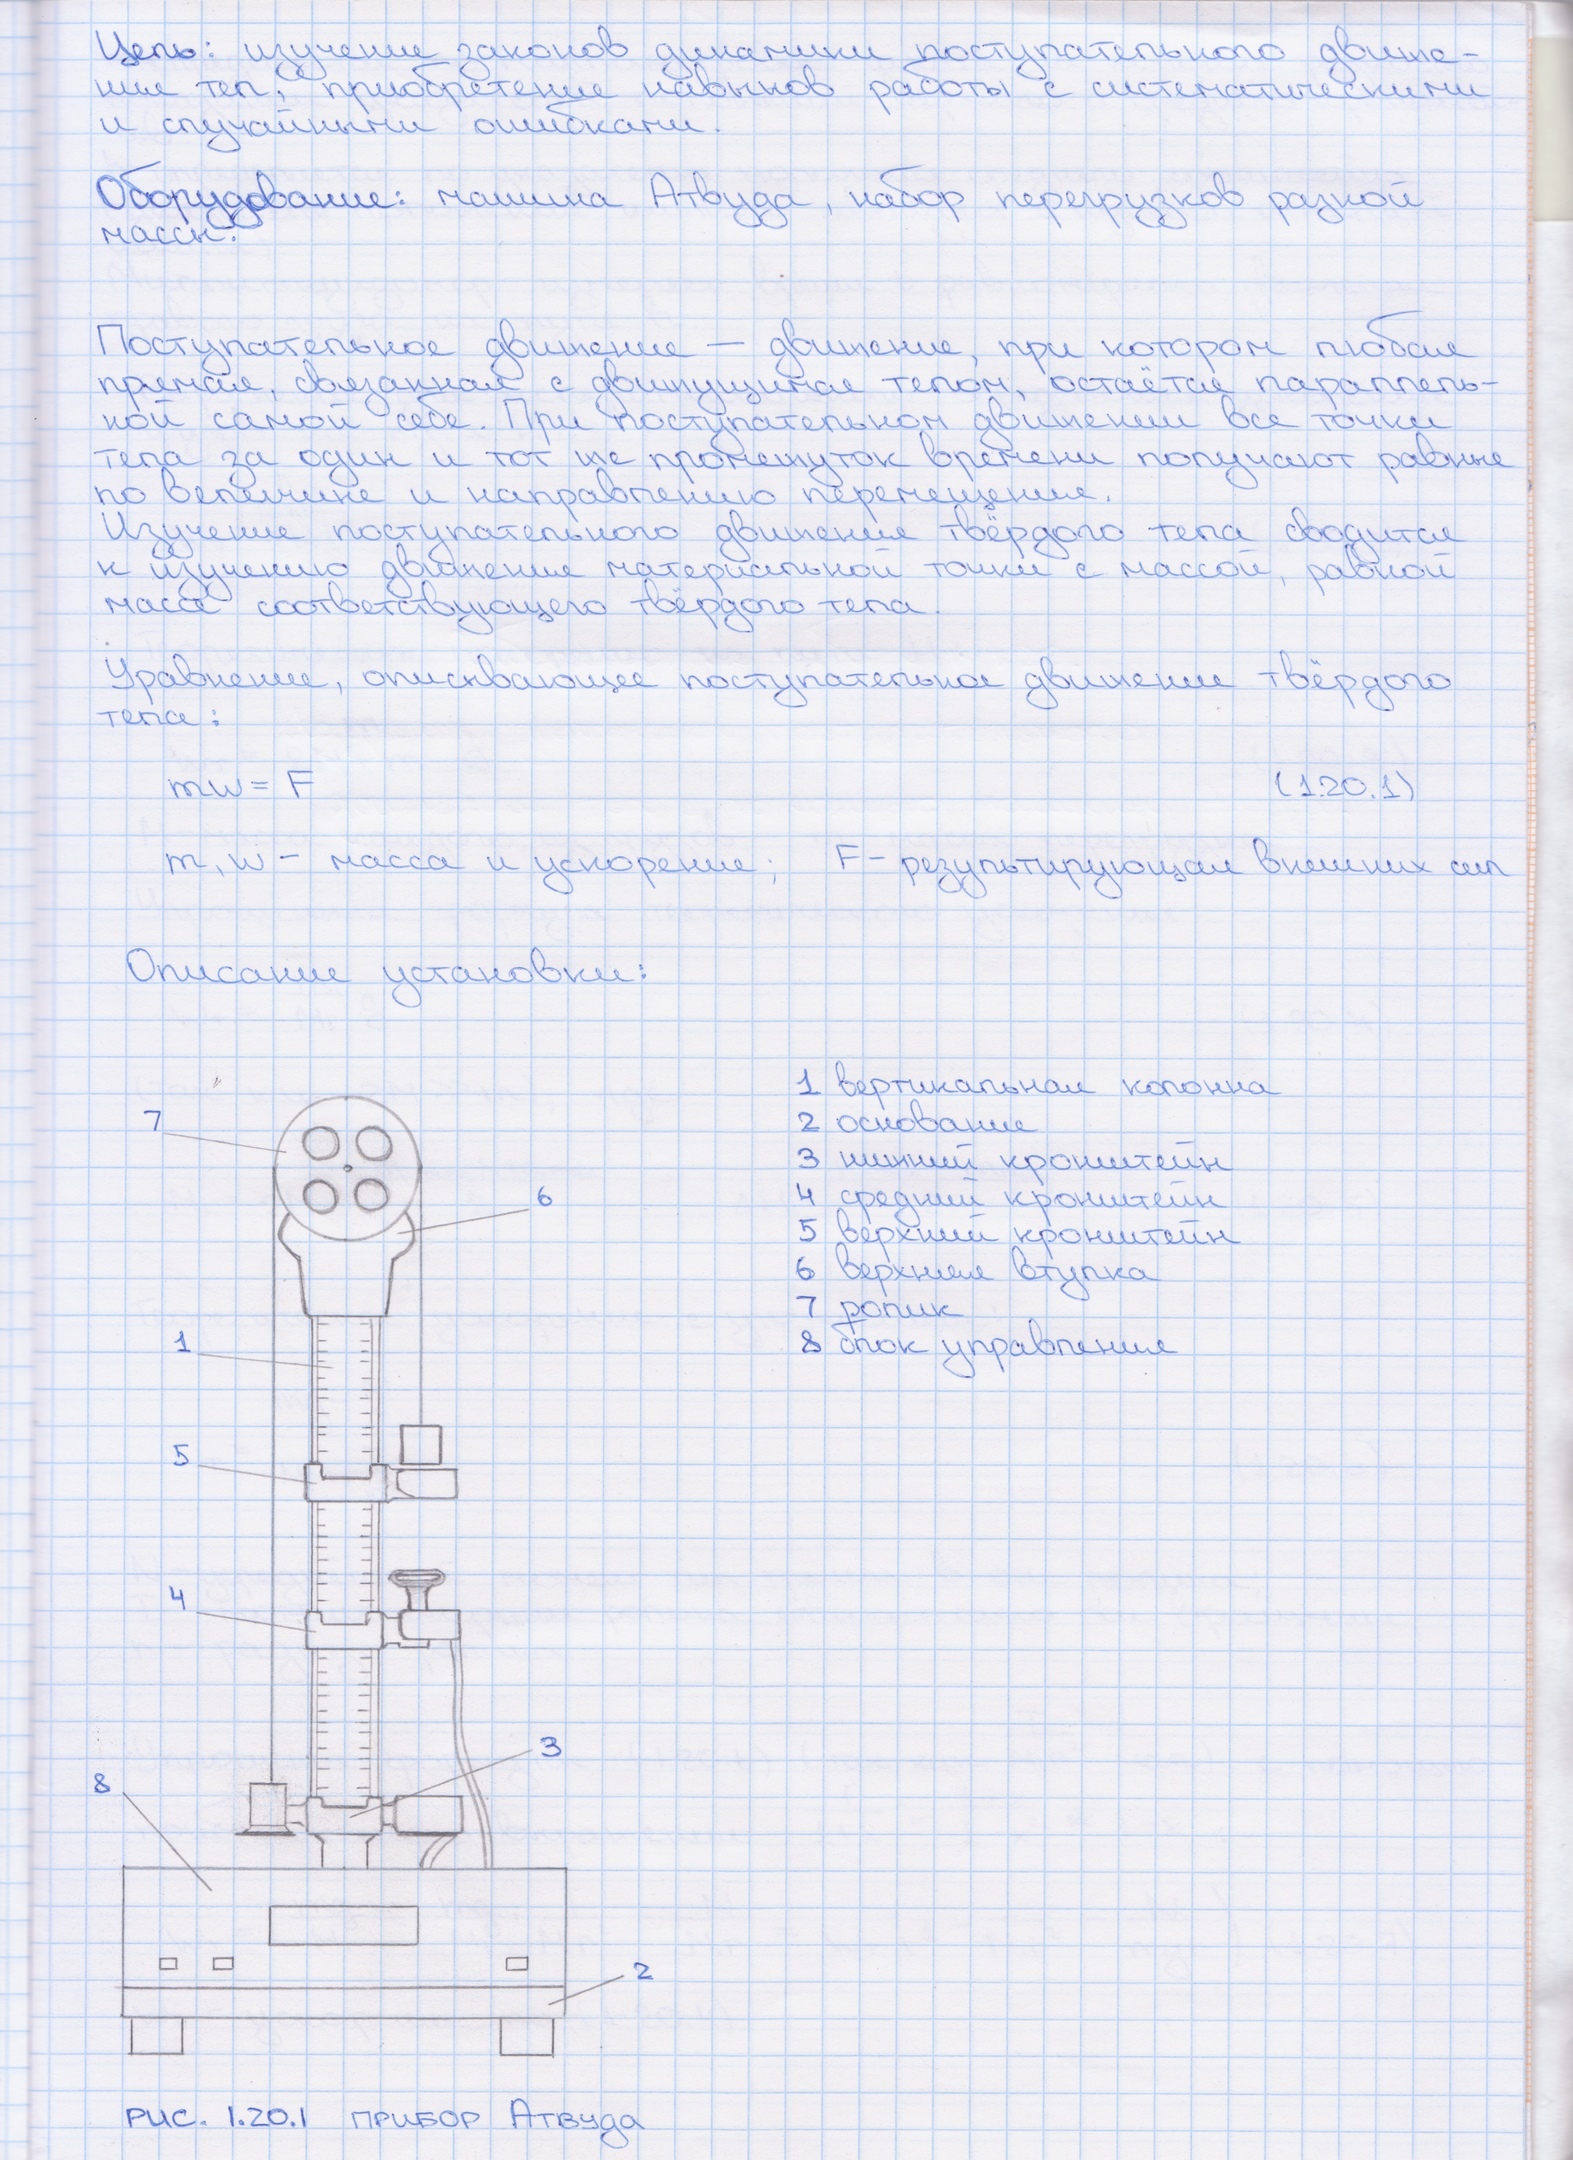 Цель: изучение законов динамики поступательного движе-
ния тел; приобретение навыков работы с систематическими
и случайными ошибками.
Оборудование: машина Атвуда, набор перегрузков разной
массы.
Поступательное движение — движение, при котором любая
прямая, связанная с движущимся телом, остаётся параллель-
ной самой себе. При поступательном движении все точки
тела за один и тот же промежуток времени получают равные
по величине и направлению перемещения.
Изучение поступательного движения твёрдого тела сводится
к изучению движения материальной точки с массой, равной
массе соответствующего твёрдого тела.
Уравнение, описывающее поступательное движение твёрдого
тела:
mw = F (1.20.1)
m, w - масса и ускорение; F - результирующая внешних сил
Описание установки:
1 вертикальная колонна
2 основание
3 нижний кронштейн
4 средний кронштейн
5 верхний кронштейн
6 верхняя втулка
7 ролик
8 блок управления
7
6
1
5
4
3
8
2
РИС. 1.20.1 ПРИБОР Атвуда